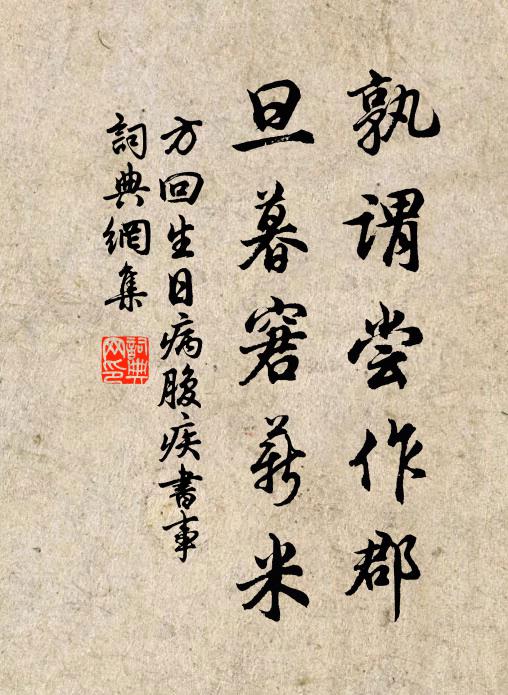 孰谓尝作郡
旦暮窘薪米
方回生日病腹疾書事
詞典網集
詞典網印